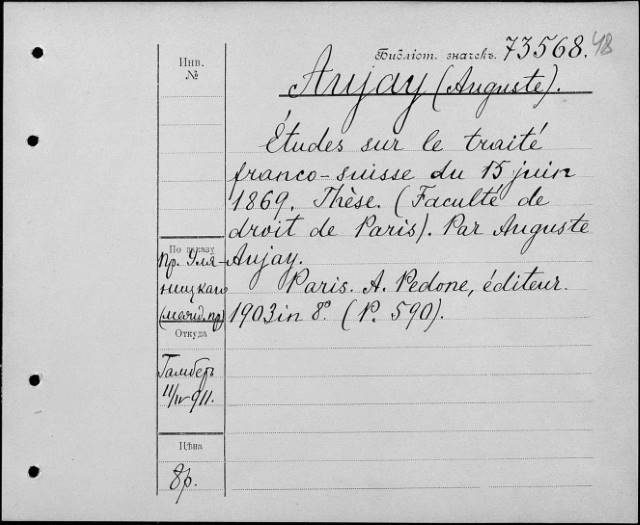 Инв.
№
Библіот. значекъ. 73568. 48
Aujay (Auguste).
Études sur le traité
franco-suisse du 15 juin
1869. Thèse. (Faculté de
droit de Paris). Par Auguste
Aujay.
Paris. A. Pedone, éditeur.
1903 in 8°. (P. 590).
По заказу
пр. Уля-
ницкаго
Откуда
11/IV 911.
Цѣна
8р.